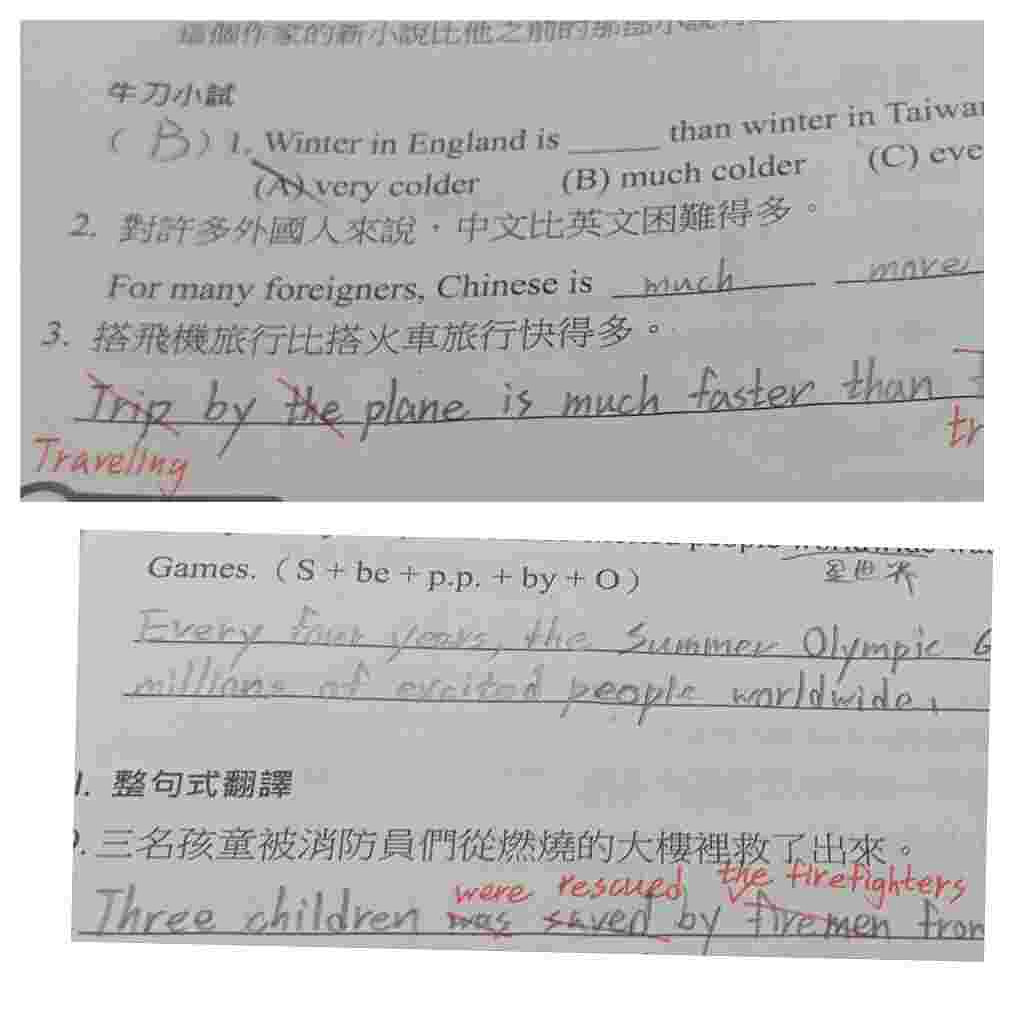 這個作家的新小說比他之前的那些小說
牛刀小試
( B ) 1. Winter in England is _____ than winter in Taiwan
(A) very colder (B) much colder (C) eve
2. 對許多外國人來說，中文比英文困難得多。
For many foreigners, Chinese is much more
3. 搭飛機旅行比搭火車旅行快得多。
Trip by the plane is much faster than
Traveling tr
people worldwide
Games. ( S + be + p.p. + by + O ) 全世界
Every four years, the Summer Olympic G
millions of excited people worldwide.
整句式翻譯
三名孩童被消防員們從燃燒的大樓裡救了出來。
were rescued the firefighters
Three children was saved by firemen from